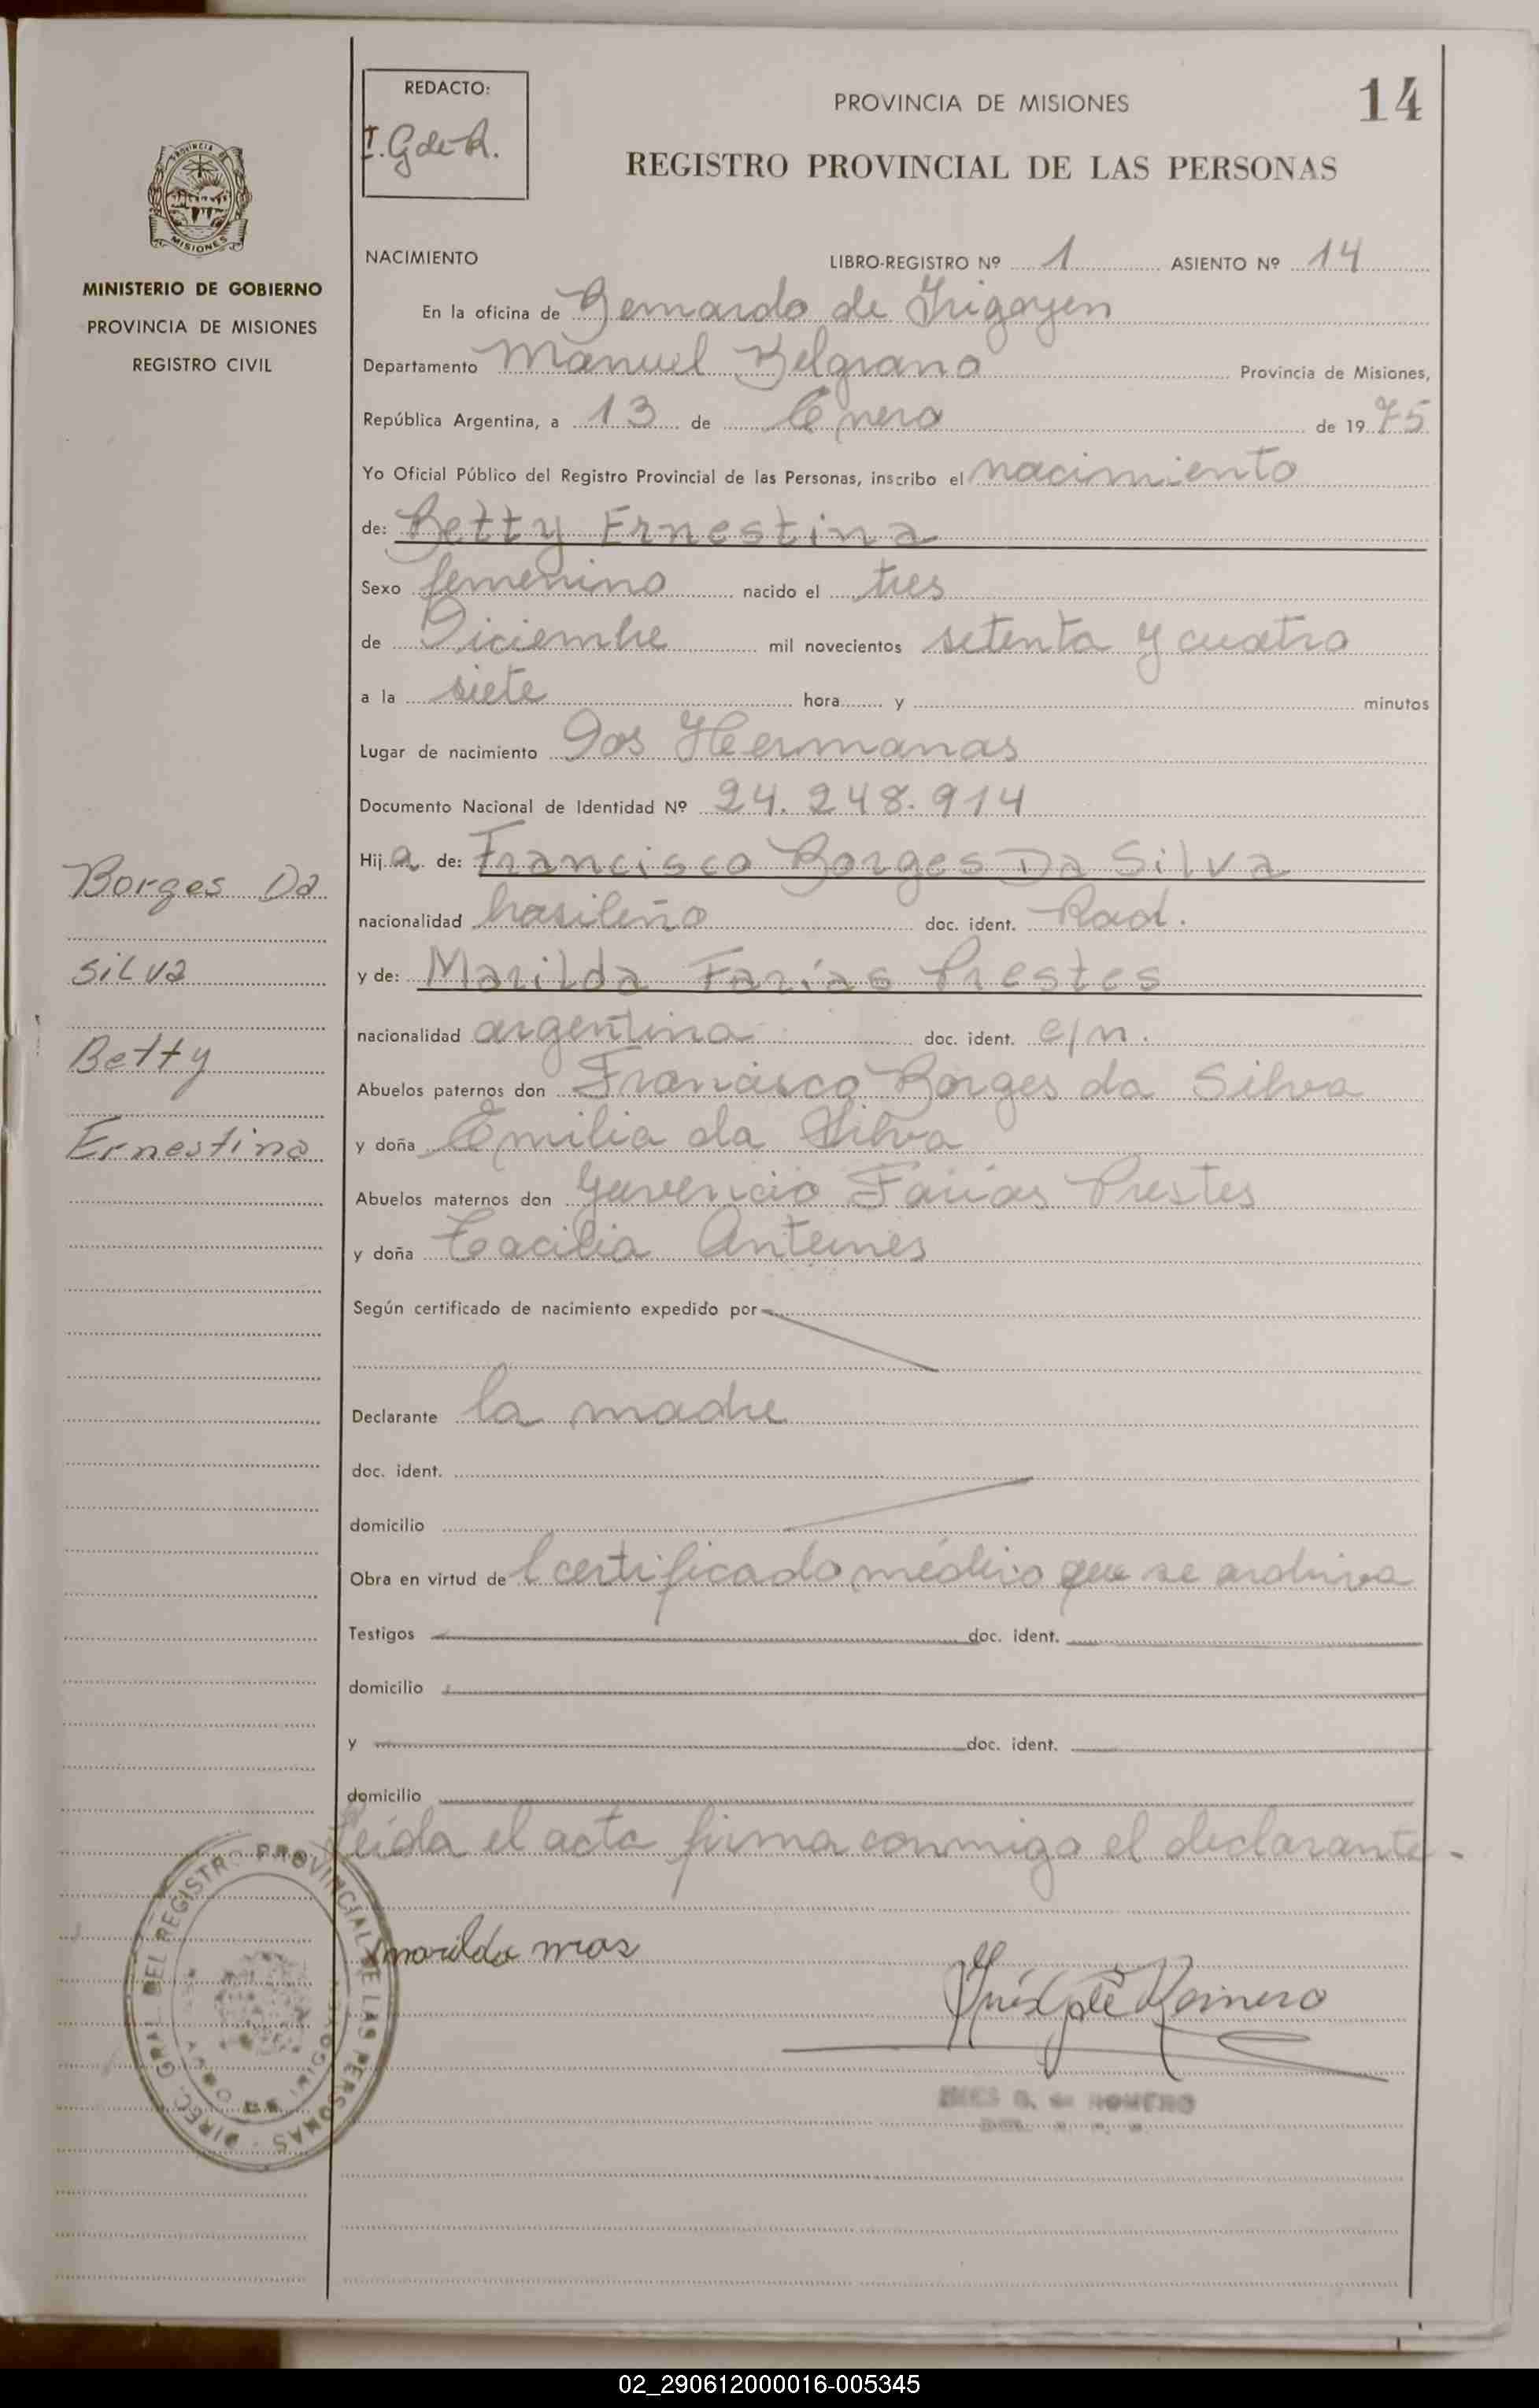 REDACTO:
I. G de R.
PROVINCIA DE MISIONES
14
REGISTRO PROVINCIAL DE LAS PERSONAS
PROVINCIA DE
MISIONES
MINISTERIO DE GOBIERNO
PROVINCIA DE MISIONES
REGISTRO CIVIL
NACIMIENTO LIBRO-REGISTRO Nº 1 ASIENTO Nº 14
En la oficina de Bernardo de Irigoyen
Departamento Manuel Belgrano Provincia de Misiones,
República Argentina, a 13 de Enero de 1975
Yo Oficial Público del Registro Provincial de las Personas, inscribo el nacimiento
de: Betty Ernestina
Sexo femenino nacido el tres
de Diciembre mil novecientos setenta y cuatro
a la siete hora y minutos
Lugar de nacimiento Dos Hermanas
Documento Nacional de Identidad Nº 24.248.914
Hija de: Francisco Borges Da Silva
nacionalidad brasileño doc. ident. Rad.
y de: Marilda Farías Prestes
nacionalidad argentina doc. ident. e/n.
Abuelos paternos don Francisco Borges da Silva
y doña Emilia da Silva
Abuelos maternos don Juvencio Farías Prestes
y doña Cacilia Antunes
Según certificado de nacimiento expedido por
Declarante la madre
doc. ident.
domicilio
Obra en virtud de l certificado médico que se archiva
Testigos doc. ident.
domicilio
y doc. ident.
domicilio
Leída el acta firma conmigo el declarante.-
Borges Da
Silva
Betty
Ernestina
DIREC. GRAL DEL REGISTRO PROVINCIAL DE LAS PERSONAS
marilda
Inés G de Romero
INES G. de ROMERO
02_290612000016-005345